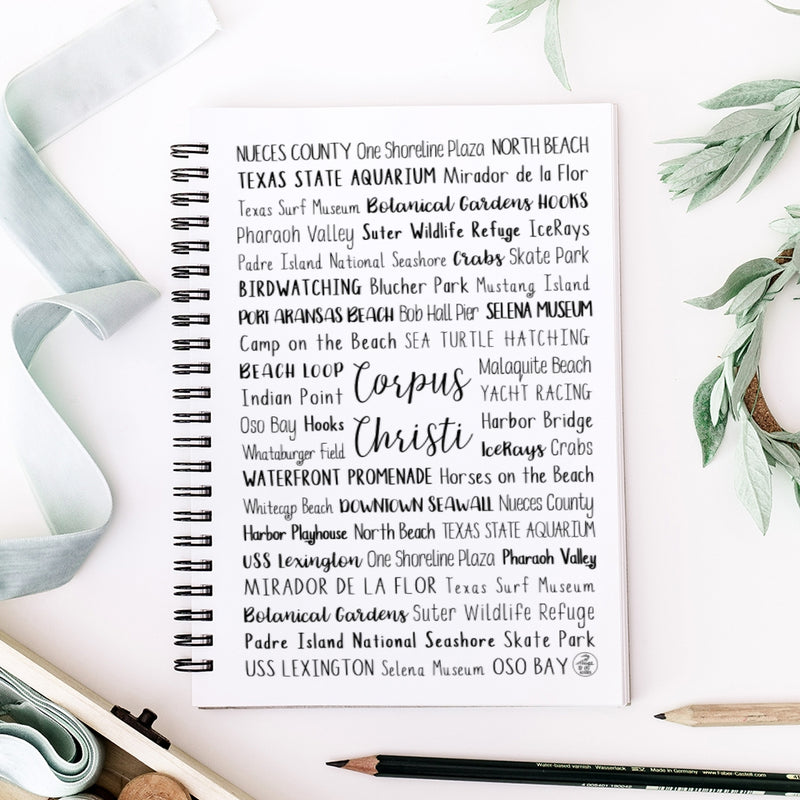 NUECES COUNTY One Shoreline Plaza NORTH BEACH
TEXAS STATE AQUARIUM Mirador de la Flor
Texas Surf Museum Botanical Gardens HOOKS
Pharaoh Valley Suter Wildlife Refuge IceRays
Padre Island National Seashore Crabs Skate Park
BIRDWATCHING Blucher Park Mustang Island
PORT ARANSAS BEACH Bob Hall Pier SELENA MUSEUM
Camp on the Beach SEA TURTLE HATCHING
BEACH LOOP Malaquite Beach
Indian Point Corpus YACHT RACING
Oso Bay Hooks Christi Harbor Bridge
Whataburger Field IceRays Crabs
WATERFRONT PROMENADE Horses on the Beach
Whitecap Beach DOWNTOWN SEAWALL Nueces County
Harbor Playhouse North Beach TEXAS STATE AQUARIUM
USS Lexington One Shoreline Plaza Pharaoh Valley
MIRADOR DE LA FLOR Texas Surf Museum
Botanical Gardens Suter Wildlife Refuge
Padre Island National Seashore Skate Park
USS LEXINGTON Selena Museum OSO BAY
Water-based varnish Wasserlack Made in Germany www.Faber-Castell.com